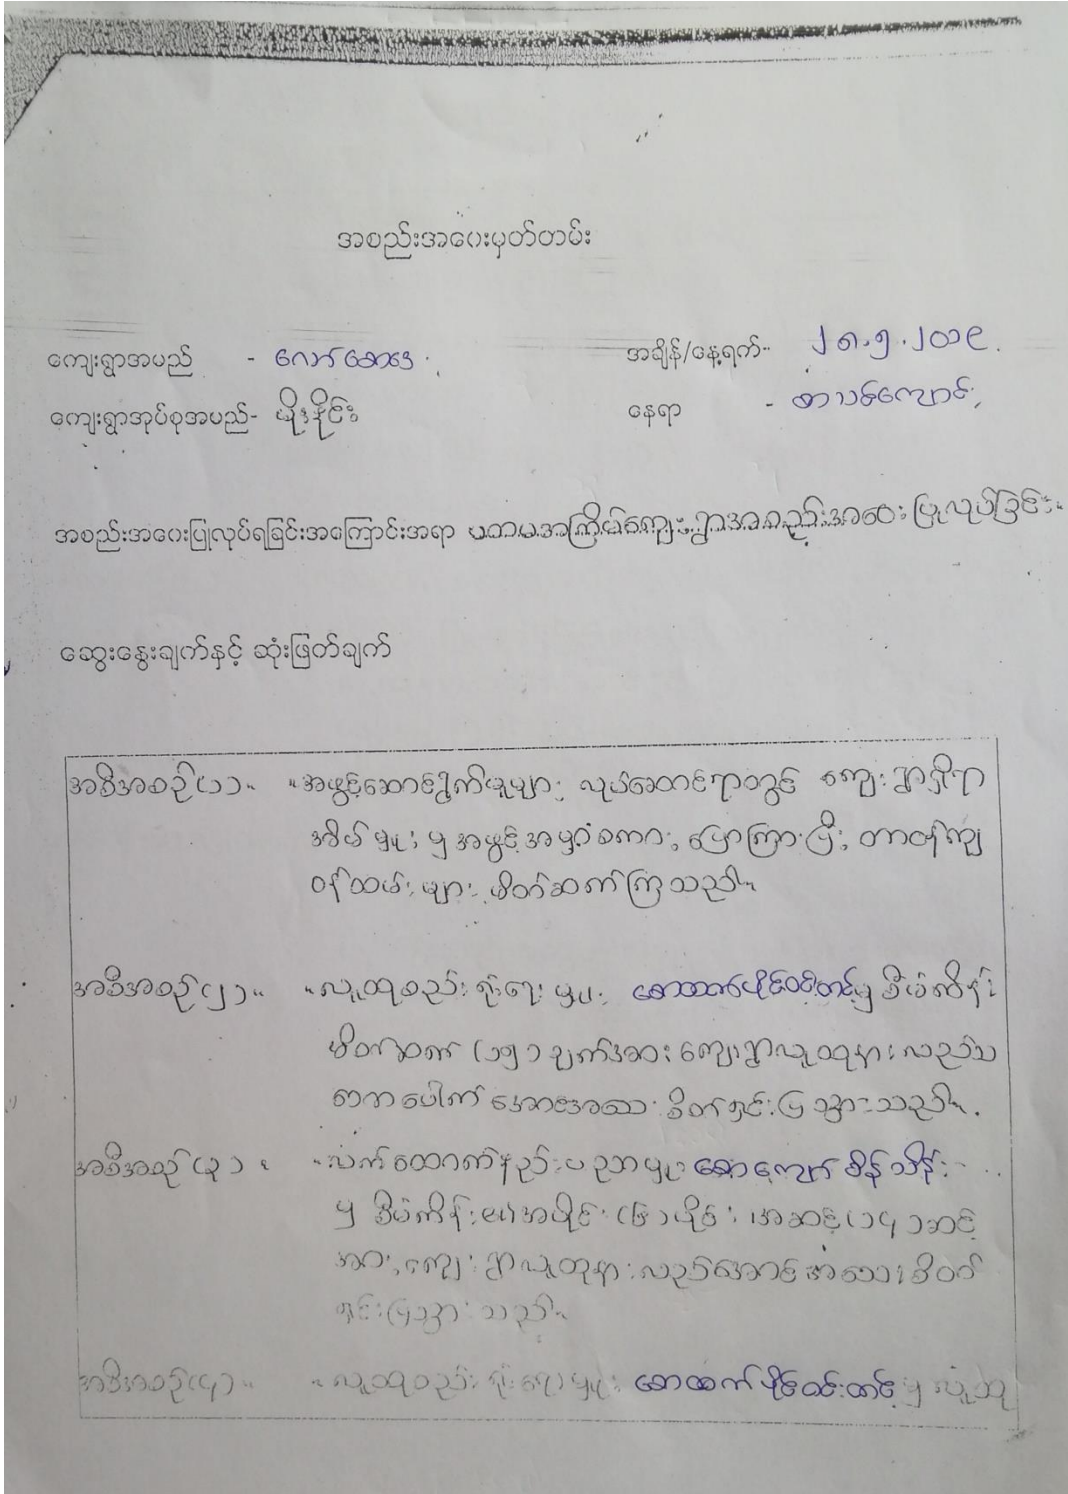 အစည်းအဝေးမှတ်တမ်း
ကျေးရွာအမည် - လော်ဆောဒေ
အချိန်/နေ့ရက်- ၂၈.၅.၂၀၁၉.
ကျေးရွာအုပ်စုအမည်- ယိုးနိုင်း
နေရာ - စာသင်ကျောင်း
အစည်းအဝေးပြုလုပ်ရခြင်းအကြောင်းအရာ ပထမအကြိမ်ကျေးရွာအစည်းအဝေး ပြုလုပ်ခြင်း။
ဆွေးနွေးချက်နှင့် ဆုံးဖြတ်ချက်
အစီအစဉ်(၁)။ ။အဖွင့်ဆောင်ရွက်မှုများ လုပ်ဆောင်ရာတွင် ကျေးရွာရှိရာ
အိမ်မှူးမှ အဖွင့်အမှာစကား ပြောကြားပြီး တာဝန်ကျ
ဝန်ထမ်းများ မိတ်ဆက်ကြသည်။
အစီအစဉ်(၂)။ ။လူထုစည်းရုံးရေးမှူး စောထက်ပိုင် မှ စီမံကိန်း
မိတ်ဆက် (၁၅) ချက်အား ကျေးရွာလူထုနားလည်သ
ဘောပေါက်အောင်အသေးစိတ်ရှင်းပြသွားသည်။
အစီအစဉ်(၃)။ ။လက်ထောက်နည်းပညာမှူး စောကျော်စိန်သိန်း
မှ စီမံကိန်း၏အပိုင်း (၆) ပိုင်း၊ အဆင့် (၁၄) ဆင့်
အား ကျေးရွာလူထုနားလည်အောင် အသေးစိတ်
ရှင်းပြသွားသည်။
အစီအစဉ်(၄)။ ။လူထုစည်းရုံးရေးမှူး စောထက်ပိုင် မှ လူထု